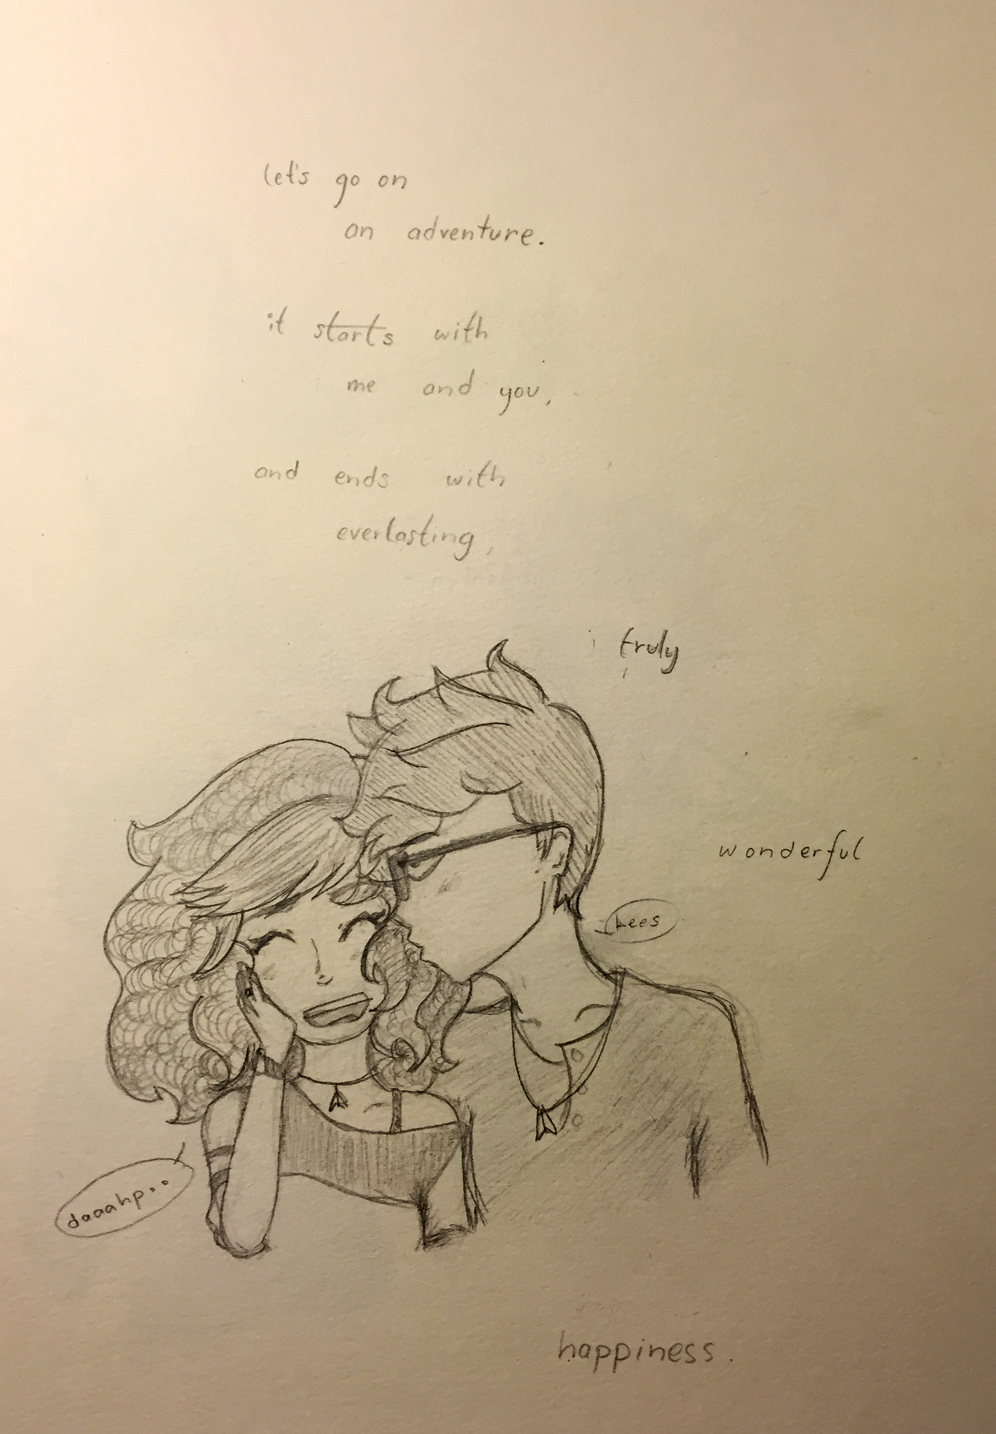 let's go on
an adventure.
it starts with
me and you,
and ends with
everlasting,
truly
wonderful
Lees
daaahp..
happiness.